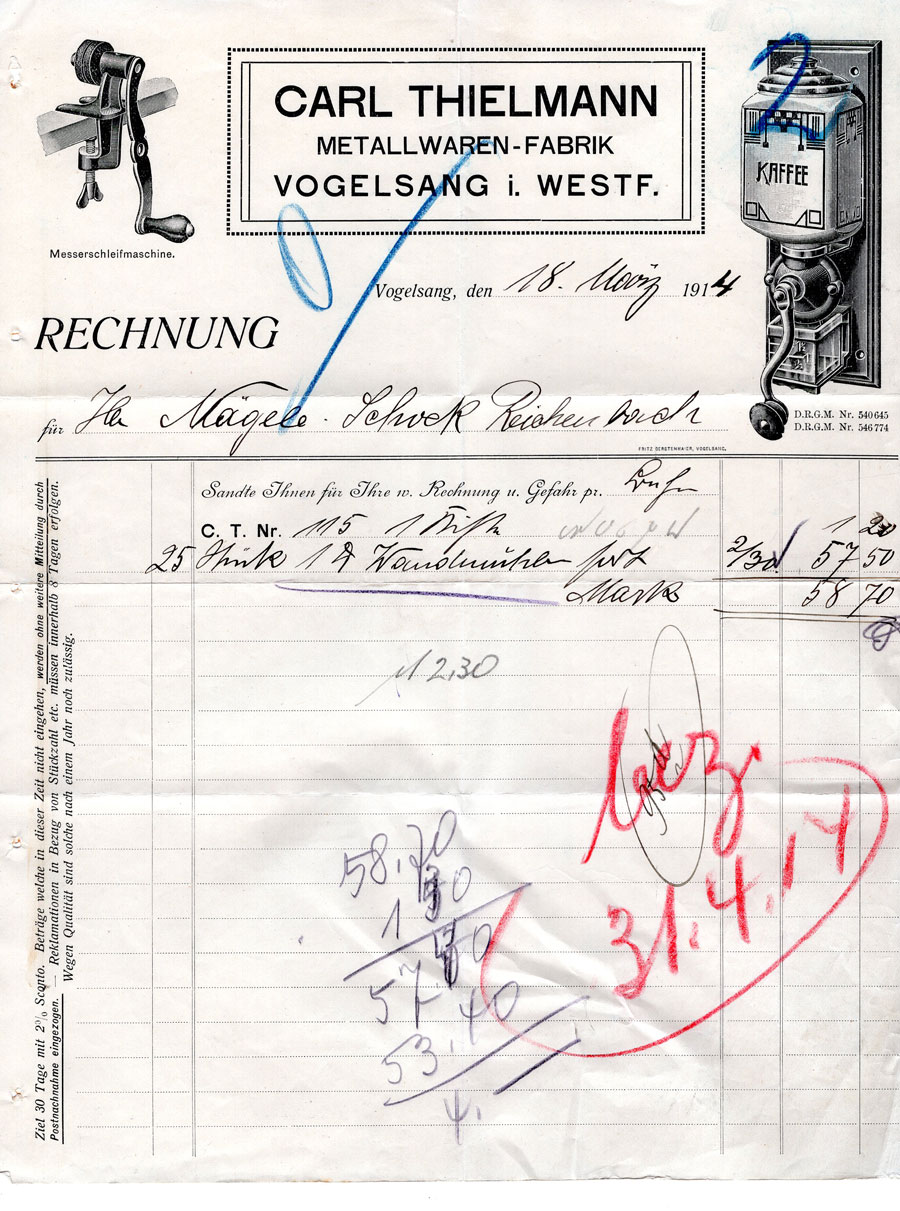 CARL THIELMANN
METALLWAREN-FABRIK
VOGELSANG i. WESTF.
Messerschleifmaschine.
KAFFEE
2
Vogelsang, den 18. März 1914
RECHNUNG
D.R.G.M. Nr. 540645
D.R.G.M. Nr. 546774
für Nägele. Schock Reichenbach
FRITZ GERSTENMAIER, VOGELSANG.
Sandte Ihnen für Ihre w. Rechnung u. Gefahr pr.
C. T. Nr. 115 1 Kiste 1 20
25 Stück Wandmühlen 2/30 57 50
Mark 58 70
M 2,30
bez.
31.4.14
58,70
57
53.40
4.
Ziel 30 Tage mit 2% Sconto. Beträge welche in dieser Zeit nicht eingehen, werden ohne weitere Mitteilung durch
Postnachnahme eingezogen. — Reklamationen in Bezug von Stückzahl etc. müssen innerhalb 8 Tagen erfolgen.
Wegen Qualität sind solche nach einem Jahr noch zulässig.